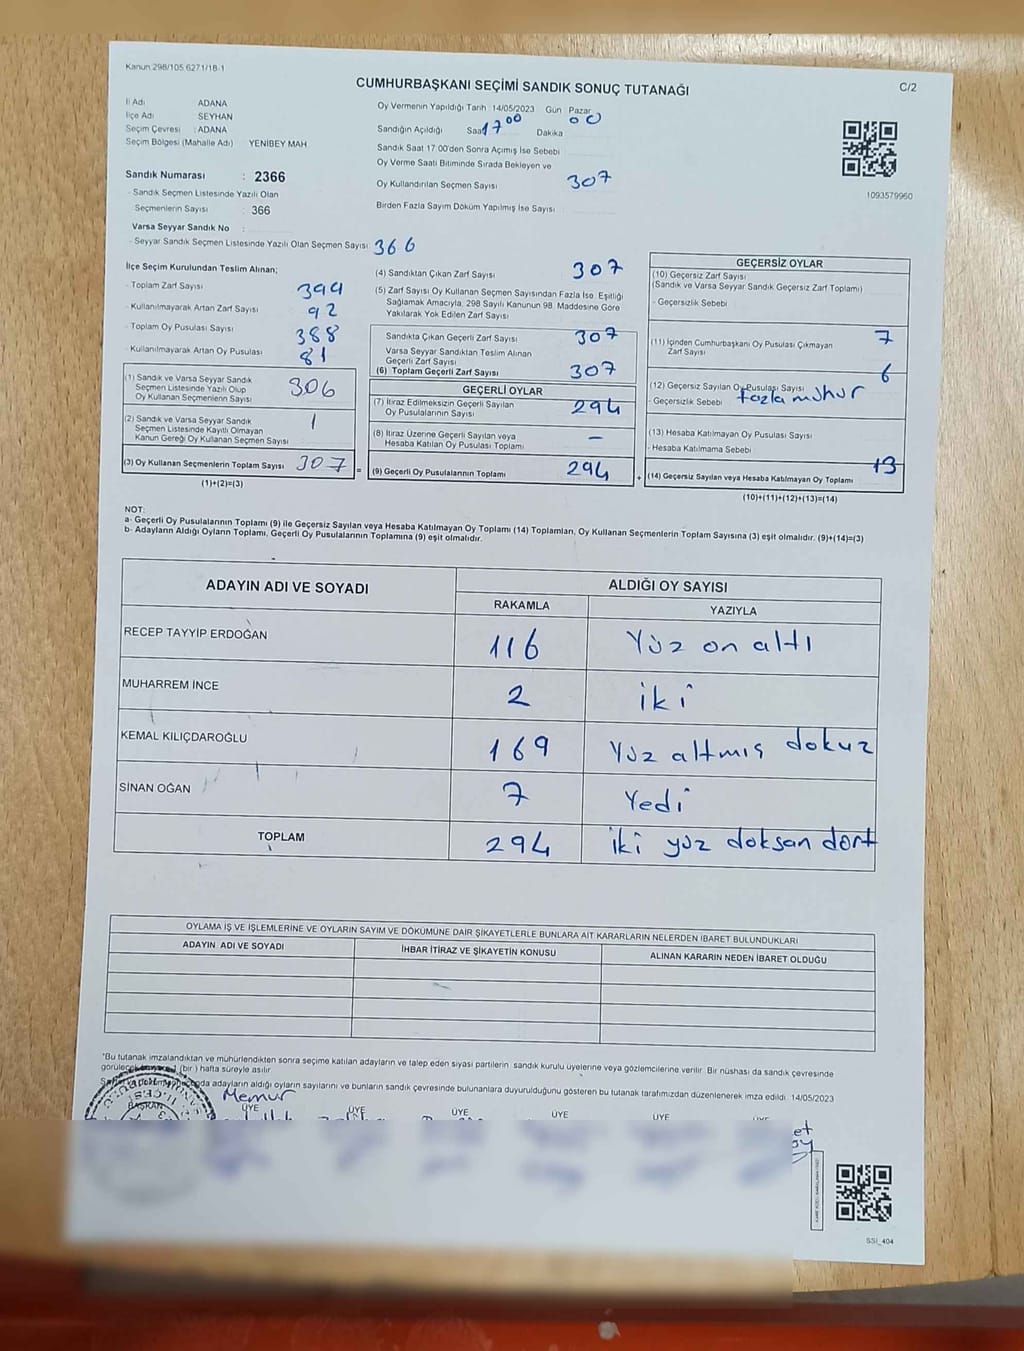 Kanun 298/105 6271/18-1
CUMHURBAŞKANI SEÇİMİ SANDIK SONUÇ TUTANAĞI
C/2
İl Adı ADANA
İlçe Adı SEYHAN
Seçim Çevresi : ADANA
Seçim Bölgesi (Mahalle Adı) YENİBEY MAH
Sandık Numarası : 2366
- Sandık Seçmen Listesinde Yazılı Olan
Seçmenlerin Sayısı : 366
Varsa Seyyar Sandık No :
- Seyyar Sandık Seçmen Listesinde Yazılı Olan Seçmen Sayısı 366
Oy Vermenin Yapıldığı Tarih : 14/05/2023 Gün Pazar
Sandığın Açıldığı Saat 17 00 Dakika 00
Sandık Saat 17.00'den Sonra Açılmış İse Sebebi
Oy Verme Saati Bitiminde Sırada Bekleyen ve
Oy Kullandırılan Seçmen Sayısı 307
Birden Fazla Sayım Döküm Yapılmış İse Sayısı
1093579960
İlçe Seçim Kurulundan Teslim Alınan;
- Toplam Zarf Sayısı 399
- Kullanılmayarak Artan Zarf Sayısı 92
- Toplam Oy Pusulası Sayısı 388
- Kullanılmayarak Artan Oy Pusulası 81
(1) Sandık ve Varsa Seyyar Sandık
Seçmen Listesinde Yazılı Olup
Oy Kullanan Seçmenlerin Sayısı 306
(2) Sandık ve Varsa Seyyar Sandık
Seçmen Listesinde Kayıtlı Olmayan
Kanun Gereği Oy Kullanan Seçmen Sayısı 1
(3) Oy Kullanan Seçmenlerin Toplam Sayısı 307
(1)+(2)=(3)
(4) Sandıktan Çıkan Zarf Sayısı 307
(5) Zarf Sayısı Oy Kullanan Seçmen Sayısından Fazla İse, Eşitliği
Sağlamak Amacıyla, 298 Sayılı Kanunun 98. Maddesine Göre
Yakılarak Yok Edilen Zarf Sayısı
Sandıkta Çıkan Geçerli Zarf Sayısı 307
Varsa Seyyar Sandıktan Teslim Alınan
Geçerli Zarf Sayısı
(6) Toplam Geçerli Zarf Sayısı 307
GEÇERLİ OYLAR
(7) İtiraz Edilmeksizin Geçerli Sayılan
Oy Pusulalarının Sayısı 294
(8) İtiraz Üzerine Geçerli Sayılan veya
Hesaba Katılan Oy Pusulası Toplamı –
(9) Geçerli Oy Pusulalarının Toplamı 294
GEÇERSİZ OYLAR
(10) Geçersiz Zarf Sayısı
(Sandık ve Varsa Seyyar Sandık Geçersiz Zarf Toplamı)
- Geçersizlik Sebebi
(11) İçinden Cumhurbaşkanı Oy Pusulası Çıkmayan
Zarf Sayısı 7
(12) Geçersiz Sayılan Oy Pusulası Sayısı 6
- Geçersizlik Sebebi fazla mühür
(13) Hesaba Katılmayan Oy Pusulası Sayısı
- Hesaba Katılmama Sebebi
(14) Geçersiz Sayılan veya Hesaba Katılmayan Oy Toplamı 13
(10)+(11)+(12)+(13)=(14)
NOT:
a- Geçerli Oy Pusulalarının Toplamı (9) ile Geçersiz Sayılan veya Hesaba Katılmayan Oy Toplamı (14) Toplamları, Oy Kullanan Seçmenlerin Toplam Sayısına (3) eşit olmalıdır. (9)+(14)=(3)
b- Adayların Aldığı Oyların Toplamı, Geçerli Oy Pusulalarının Toplamına (9) eşit olmalıdır.
ADAYIN ADI VE SOYADI ALDIĞI OY SAYISI
RAKAMLA YAZIYLA
RECEP TAYYİP ERDOĞAN 116 Yüz on altı
MUHARREM İNCE 2 iki
KEMAL KILIÇDAROĞLU 169 Yüz altmış dokuz
SİNAN OĞAN 7 Yedi
TOPLAM 294 iki yüz doksan dört
OYLAMA İŞ VE İŞLEMLERİNE VE OYLARIN SAYIM VE DÖKÜMÜNE DAİR ŞİKAYETLERLE BUNLARA AİT KARARLARIN NELERDEN İBARET BULUNDUKLARI
ADAYIN ADI VE SOYADI İHBAR İTİRAZ VE ŞİKAYETİN KONUSU ALINAN KARARIN NEDEN İBARET OLDUĞU
*Bu tutanak imzalandıktan ve mühürlendikten sonra seçime katılan adayların ve talep eden siyasi partilerin sandık kurulu üyelerine veya gözlemcilerine verilir. Bir nüshası da sandık çevresinde
(bir) hafta süreyle asılır.
adayların aldığı oyların sayılarını ve bunların sandık çevresinde bulunanlara duyurulduğunu gösteren bu tutanak tarafımızdan düzenlenerek imza edildi. 14/05/2023
BAŞKAN Memur
ÜYE ÜYE ÜYE ÜYE ÜYE ÜYE
SSİ_404